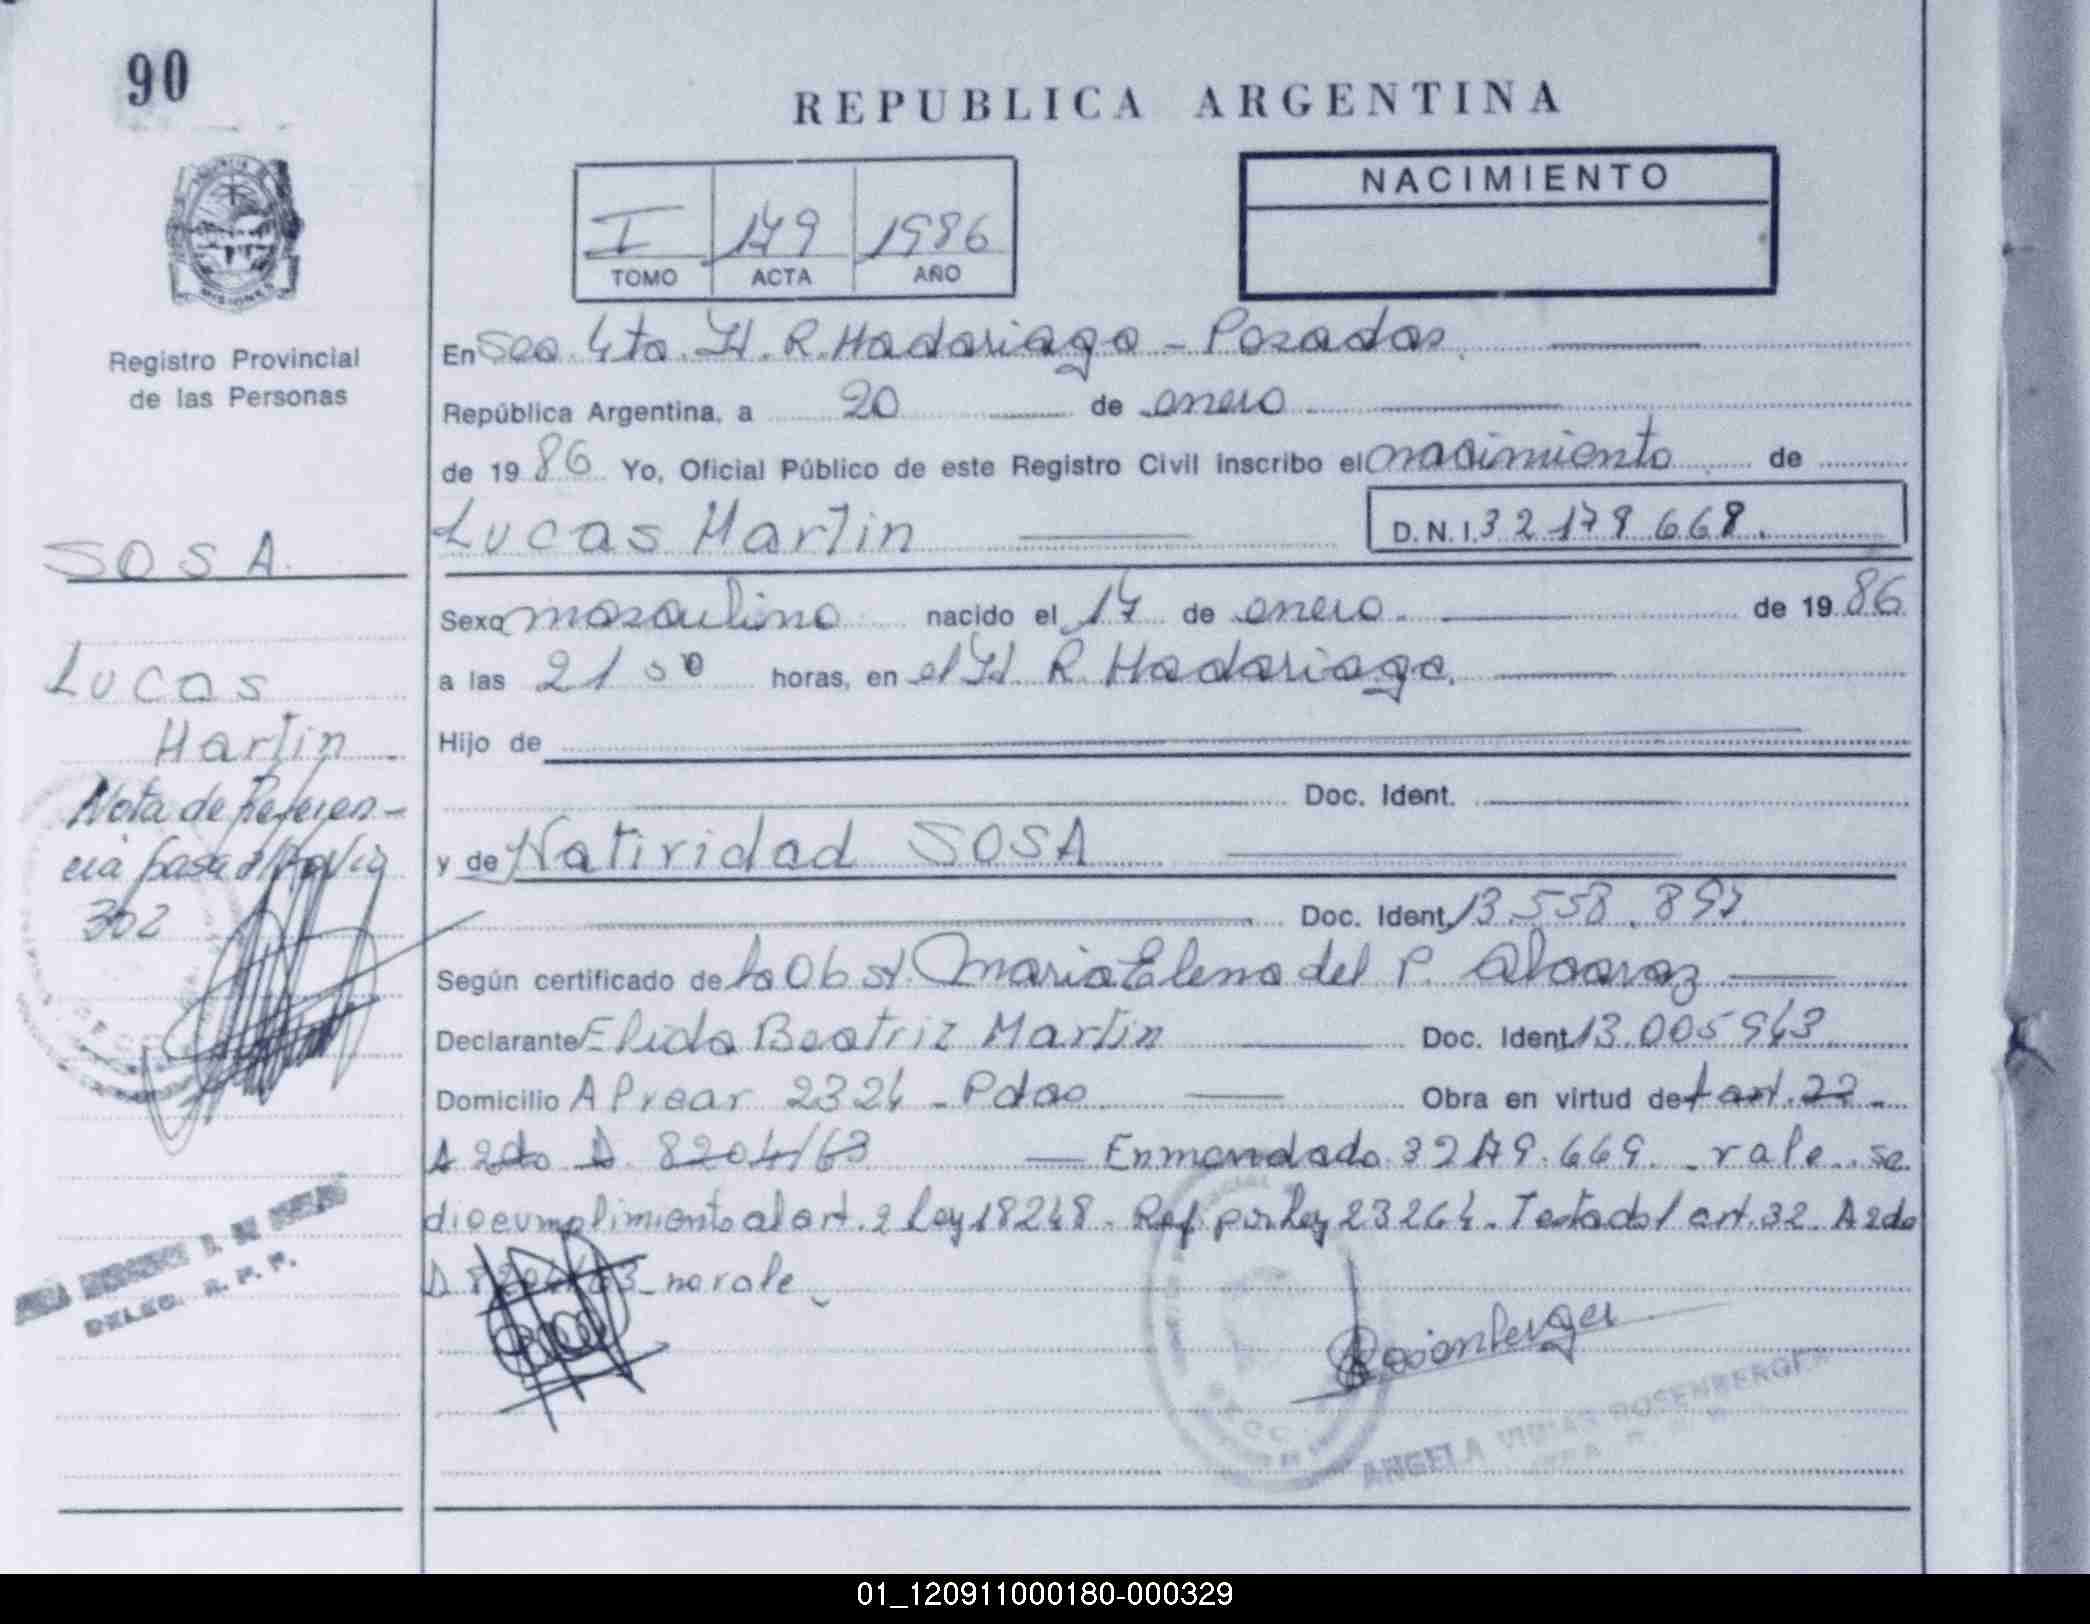 90
REPUBLICA ARGENTINA
NACIMIENTO
I 179 1986
TOMO ACTA AÑO
MISIONES
Registro Provincial
de las Personas
SOSA
Lucas
Martin
Nota de Referen-
cia pasa al folio
302
DELEG. R. P. P.
En Sec. 4ta. H. R. Madariaga - Posadas.
República Argentina, a 20 de enero
de 1986 Yo, Oficial Público de este Registro Civil inscribo el nacimiento de
Lucas Martin D.N.I. 32.179.668.
Sexo masculino nacido el 17 de enero. de 1986
a las 21 50 horas, en el H. R. Madariaga.
Hijo de
Doc. Ident.
y de Natividad SOSA
Doc. Ident. 13.558.897
Según certificado de la Obst. Maria Elena del P. Alcaraz
Declarante Elida Beatriz Martin Doc. Ident. 13.005.943
Domicilio A Prear 2324 - Pdas Obra en virtud del art. 22 -
A 2do D. 8204/63 — Enmendado 32179.669. - vale. se
dio cumplimiento al art. 2 Ley 18248. Ref. por Ley 23264. Testado / art. 32. A 2do
D 8204/63 - no vale
Rosenberger
ANGELA ROSENBERGER
01_120911000180-000329